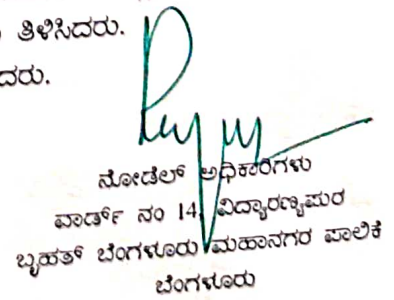 ತಿಳಿಸಿದರು.
ದರು.
ನೋಡೆಲ್ ಅಧಿಕಾರಿಗಳು
ವಾರ್ಡ್ ನಂ 14, ವಿದ್ಯಾರಣ್ಯಪುರ
ಬೃಹತ್ ಬೆಂಗಳೂರು ಮಹಾನಗರ ಪಾಲಿಕೆ
ಬೆಂಗಳೂರು